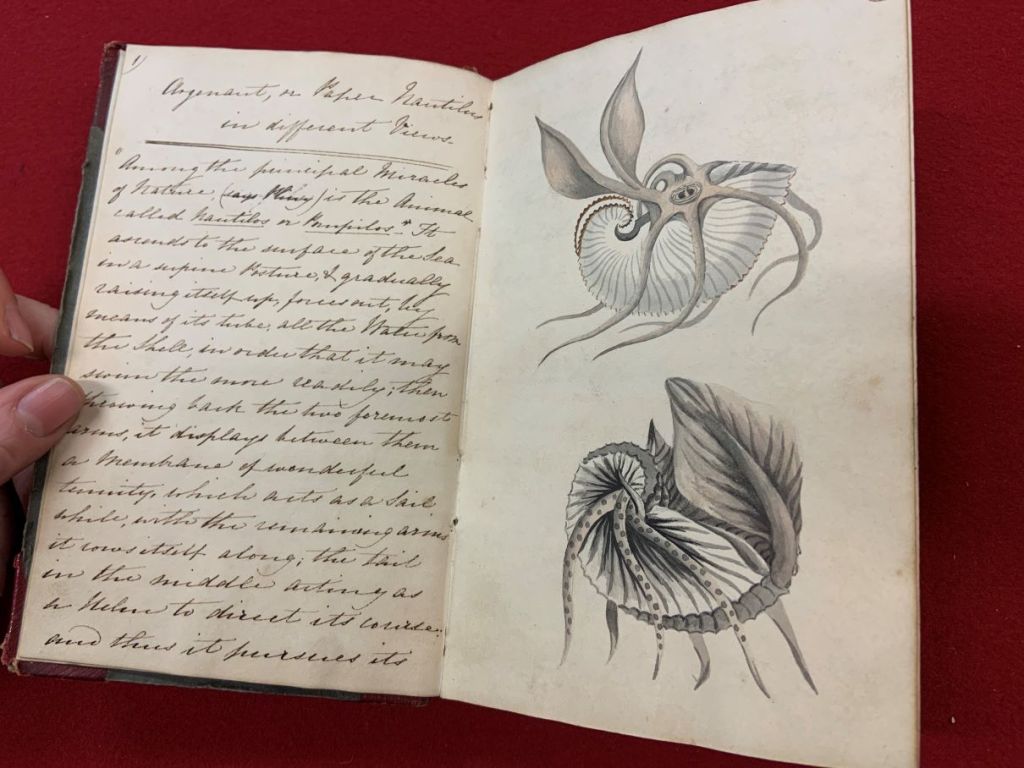 1)
Argonaut, or Paper Nautilus
in different Views.
"Among the principal Miracles
of Nature, (says Pliny) is the Animal
called Nautilos or Pompilos.* It
ascends to the surface of the Sea
in a supine Posture, & gradually
raising itself up, forces out, by
means of its tube, all the Water from
the Shell, in order that it may
swim the more readily; then
throwing back the two foremost
arms, it displays between them
a Membrane of wonderful
tenuity, which acts as a Sail
while, with the remaining arms
it rows itself along; the tail
in the middle acting as
a Helm to direct its course:
and thus it pursues its